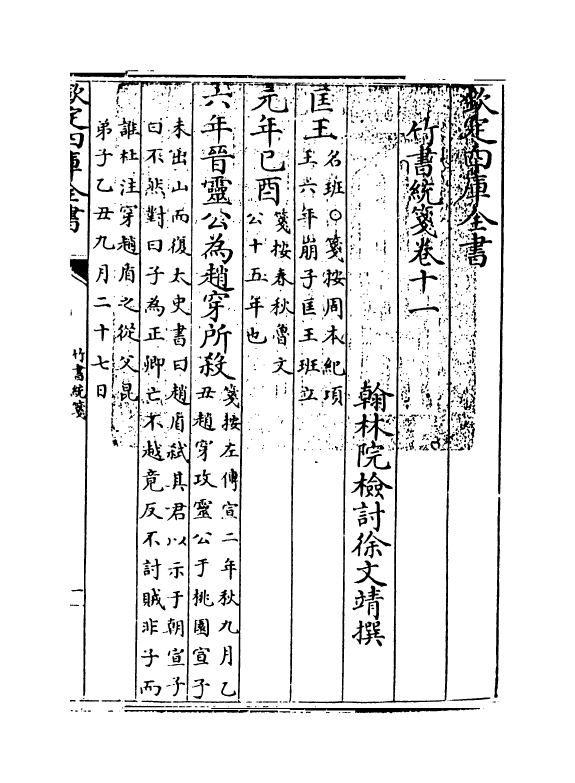 欽定四庫全書
竹書統箋卷十一
翰林院檢討徐文靖撰
匡王名班○箋按周本紀項
王六年崩子匡王班立
元年己酉箋按春秋魯文
公十五年也
六年晉靈公為趙穿所殺箋按左傳宣二年秋九月乙
丑趙穿攻靈公于桃園宣子
未出山而復太史書曰趙盾弑其君以示于朝宣子
曰不然對曰子為正卿亡不越竟反不討賊非子而
誰杜注穿趙盾之從父昆
弟子乙丑九月二十七日
欽定四庫全書
竹書統箋
一